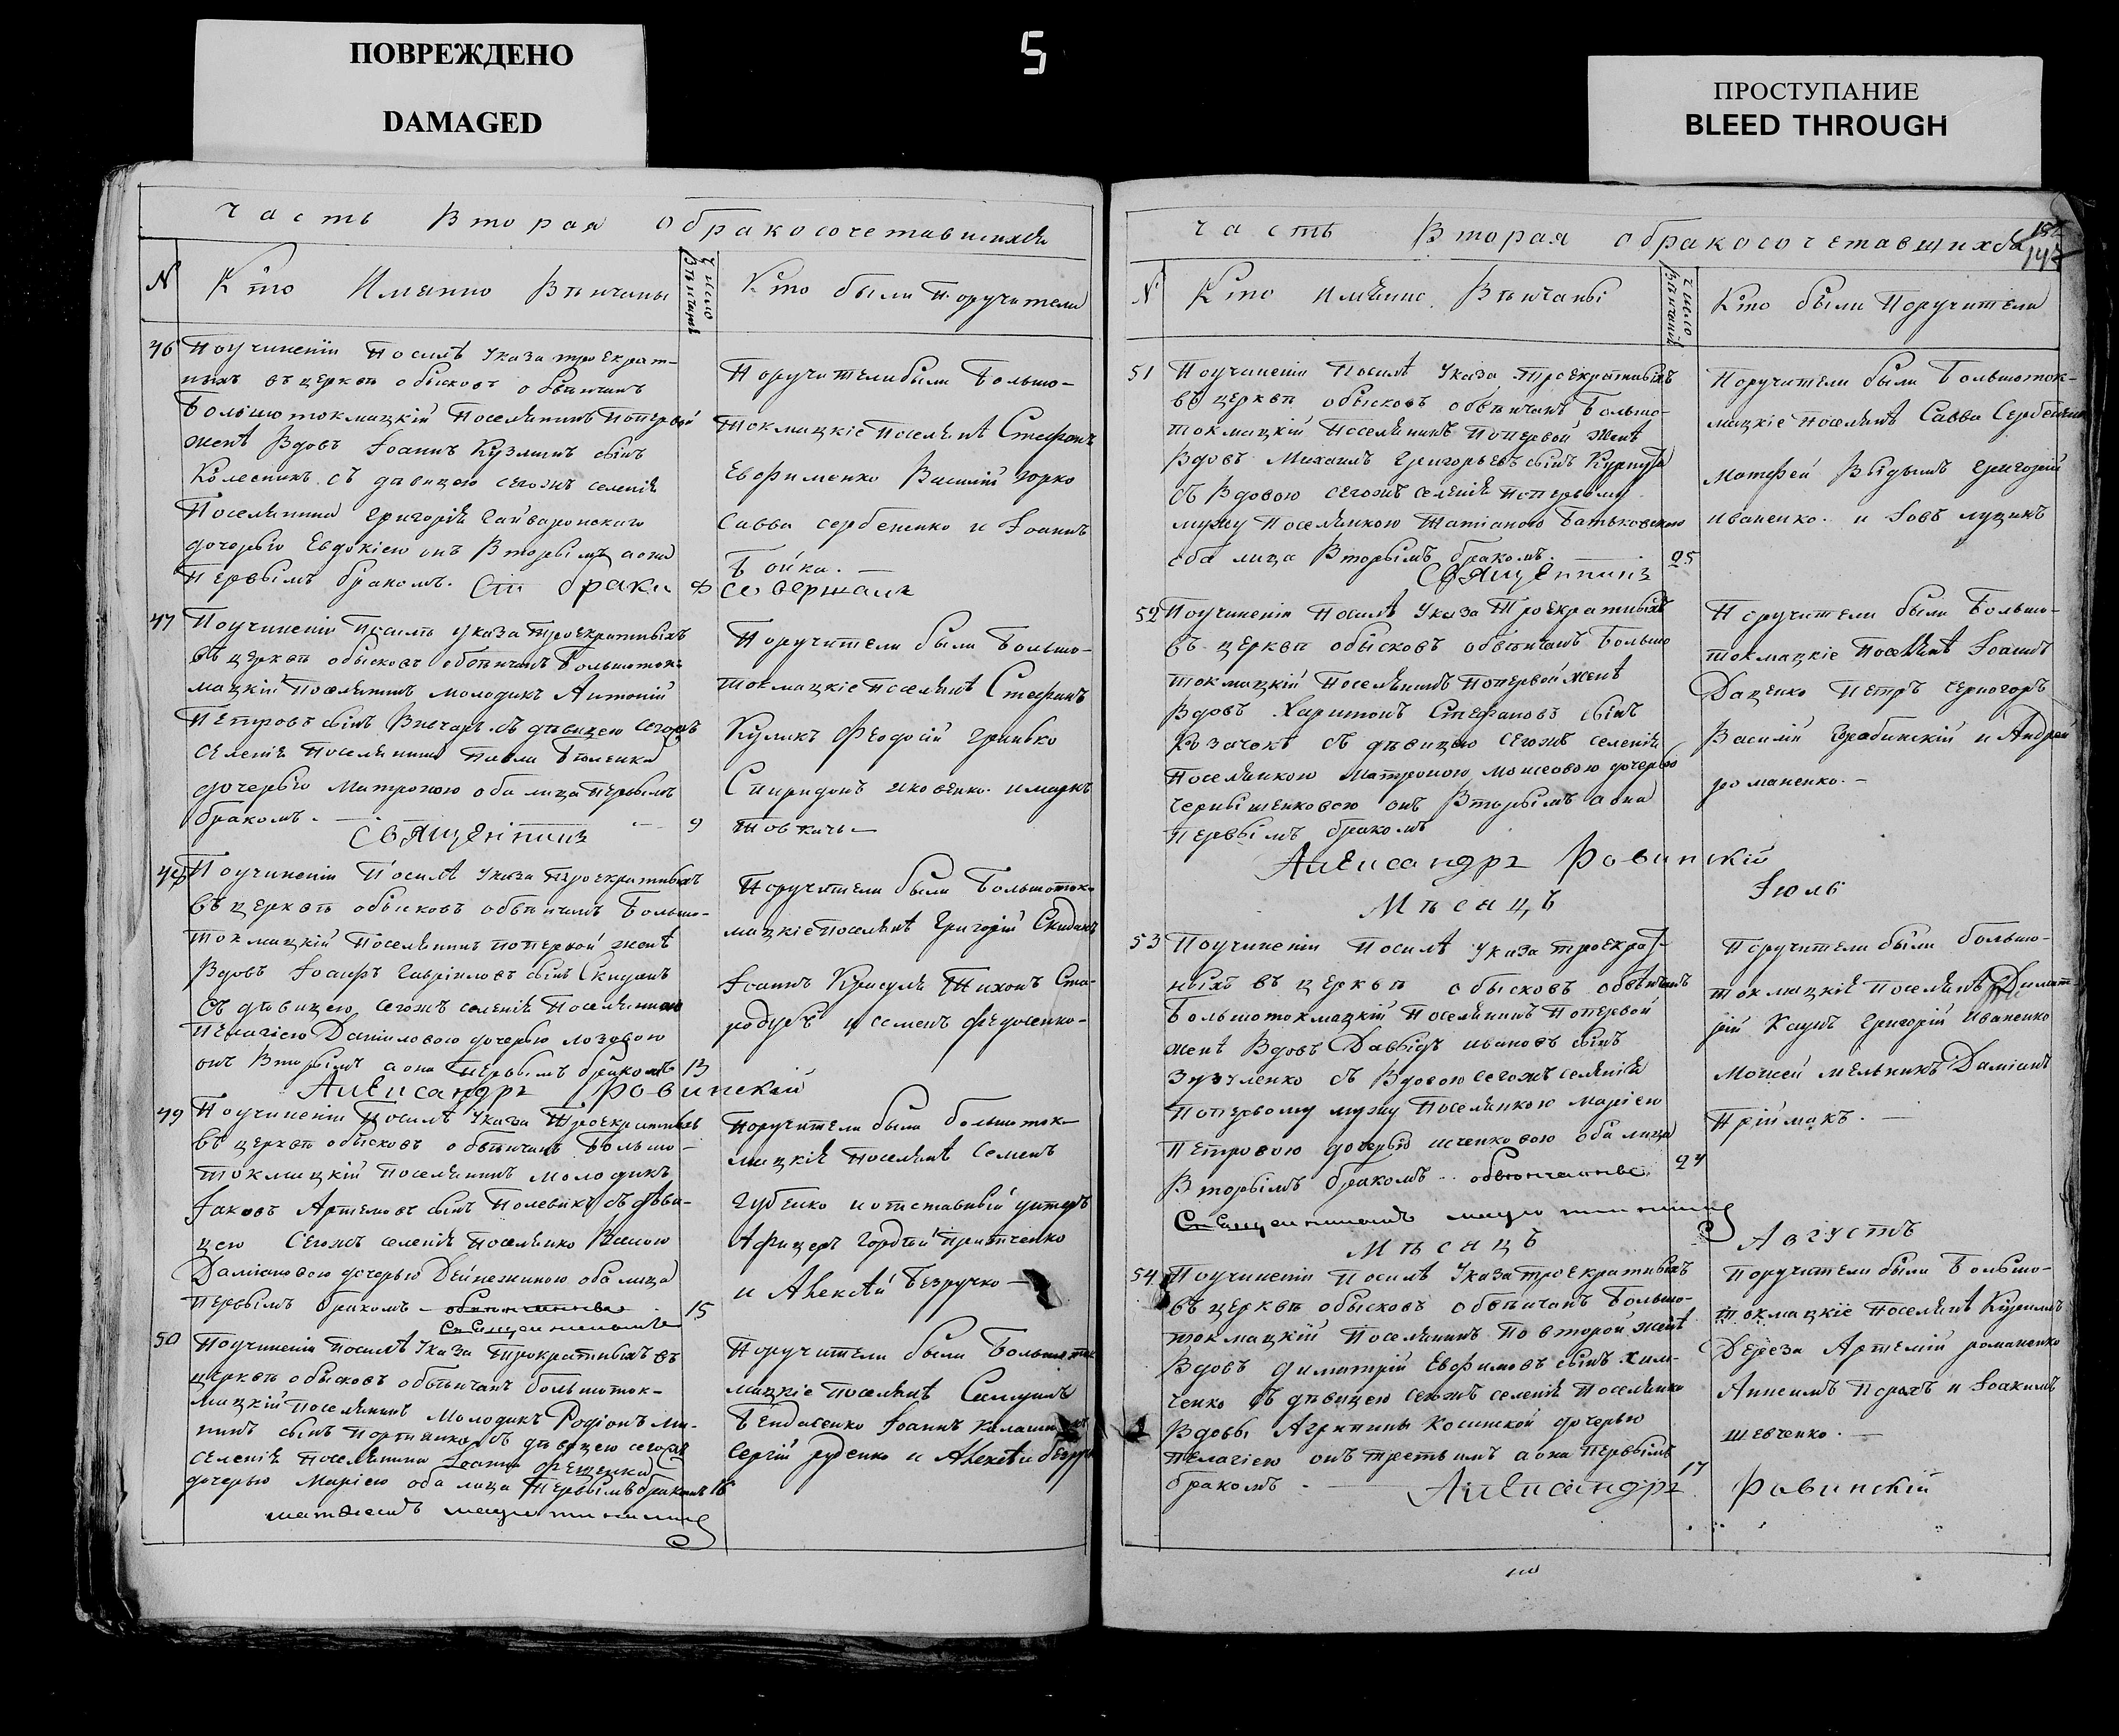 ПОВРЕЖДЕНО
DAMAGED
5
ПРОСТУПАНИЕ
BLEED THROUGH
Часть Вторая обракосочетавшихся
N
Кто Именно Вѣнчаны
Число Вѣнчанія
Кто были Поручители
46
Поучиненіи Посилѣ Указа троекрат-
ныхъ въ церкви обысковъ обвѣнчанъ
Большотокмацкій Поселянинъ Поперьвой
женѣ Вдовъ Іоаннъ Кузминъ сынъ
Колесникъ съ дѣвицею сегожъ селенія
Поселянина Григорія Гайваронскаго
дочерью Евдокіею онъ Вторымъ а она
Первымъ бракомъ.
8
Поручители были Большо-
Токмацкіе Поселянѣ Стефанъ
Евфименко Василій Юрко
Савва Сербененко и Іоаннъ
Бойко.
Сіи браки совершалъ
47
Поучиненіи Посилѣ указа Троекратныхъ
въ церкви обысковъ обвѣнчанъ Большоток-
мацкій Поселянинъ молодикъ Антоній
Петровъ сынъ съ дѣвицею сегожъ
селенія Поселянина Павла
дочерью Матроною оба лица Первымъ
бракомъ.
9
Поручители были Большо-
токмацкіе Поселянѣ Стефанъ
Куликъ Феодосій Гринько
Спиридонъ Яковенко и Маркъ
Товкачъ
Священникъ
48
Поучиненіи Посилѣ Указа Троекратныхъ
въ церкви обысковъ обвѣнчанъ Большо-
токмацкій Поселянинъ поперьвой женѣ
Вдовъ Іосифъ Гавріиловъ сынъ
съ дѣвицею сегожъ селенія Поселянкою
Пелагіею Даниловою дочерью Лозовою
онъ Вторымъ а она Первымъ бракомъ
13
Поручители были Большоток-
мацкіе поселянѣ Григорій
Іоаннъ Тихонъ Ста-
родубъ и Семенъ Федосенко
Александръ Ровинскій
49
Поучиненіи Посилѣ Указа Троекратныхъ
въ церкви обысковъ обвѣнчанъ Большо-
токмацкій Поселянинъ молодикъ
Іаковъ Артемовъ сынъ Полевикъ съ дѣви-
цею Сегожъ селенія Поселянко
Даміановою дочерью Дейнежиною оба лица
Первымъ бракомъ
15
Поручители были большоток-
мацкіе Поселянѣ Семенъ
Губенко и отставный унтеръ
Афицеръ Гордѣй
и Алексѣй Безручко
50
Поучиненіи Посилѣ Указа Трократныхъ въ
церкви обысковъ обвѣнчанъ большоток-
мацкій Поселянинъ Молодикъ Родіонъ Ми-
нинъ сынъ съ дѣвицею сегожъ
селенія Поселянина Іоанна
дочерью Маріею оба лица Первымъ бракомъ
16
Поручители были Большоток
мацкіе поселянѣ Самуилъ
Іоаннъ
Сергій Руденко и Алексѣй
Часть Вторая обракосочетавшихся
147
N
Кто Именно Вѣнчаны
Число Вѣнчаній
Кто были Поручители
51
Поучиненіи Посилѣ Указа Троекратныхъ
въ церкви обысковъ обвѣнчанъ Большо-
токмацкій Поселянинъ Поперьвой женѣ
Вдовъ Михаилъ Григорьевъ сынъ
съ Вдовою сегожъ селенія Поперьвому
мужу Поселянкою Татіаною Батьковскою
оба лица Вторымъ бракомъ.
25
Поручители были Большоток-
мацкіе Поселянѣ Савва
Матфей Григорій
Иваненко и Іовъ Луцикъ
Священникъ
52
Поучиненіи Посилѣ Указа Троекратныхъ
въ церкви обысковъ обвѣнчанъ Большо
токмацкій Поселянинъ Поперьвой женѣ
Вдовъ Харитонъ Стефановъ сынъ
Козачокъ съ дѣвицею сегожъ селенія
Поселянкою Матроною Моисеовою дочерью
Чернышенковою онъ Вторымъ а она
Первымъ бракомъ
Поручители были Большо-
токмацкіе Поселянѣ Іоаннъ
Даценко Петръ Черногоръ
Василій Грабинскій и Андрей
Романенко.
Александръ Ровинскій
Мѣсяцъ Іюль
53
Поучиненіи Посилѣ Указа троекрат-
ныхъ въ церкви обысковъ обвѣнчанъ
Большотокмацкій Поселянинъ Поперьвой
женѣ Вдовъ Давыдъ Ивановъ сынъ
съ Вдовою сегожъ селенія
Поперьвому мужу Поселянкою Маріею
Петровою дочерью Исченковою оба лица
Вторымъ бракомъ
24
Поручители были большо-
токмацкія Поселянѣ Димит-
рій Кацунъ Григорій Иваненко
Моисей Мельникъ Даміанъ
Пріймакъ.
Мѣсяцъ Августъ
54
Поучиненіи Посилѣ Указа троекратныхъ
въ церкви обысковъ обвѣнчанъ Большо-
токмацкій Поселянинъ По второй женѣ
Вдовъ Димитрій Евфимовъ сынъ Хим-
ченко съ дѣвицею сегожъ селенія Поселянко
Вдовы Агрипины Косинской дочерью
Пелагіею онъ третьимъ а она Первымъ
бракомъ
17
Поручители были Большо-
токмацкіе Поселянѣ
Дереза Артемій Романенко
Анисимъ и Іоакимъ
Шевченко.
Александръ Ровинскій